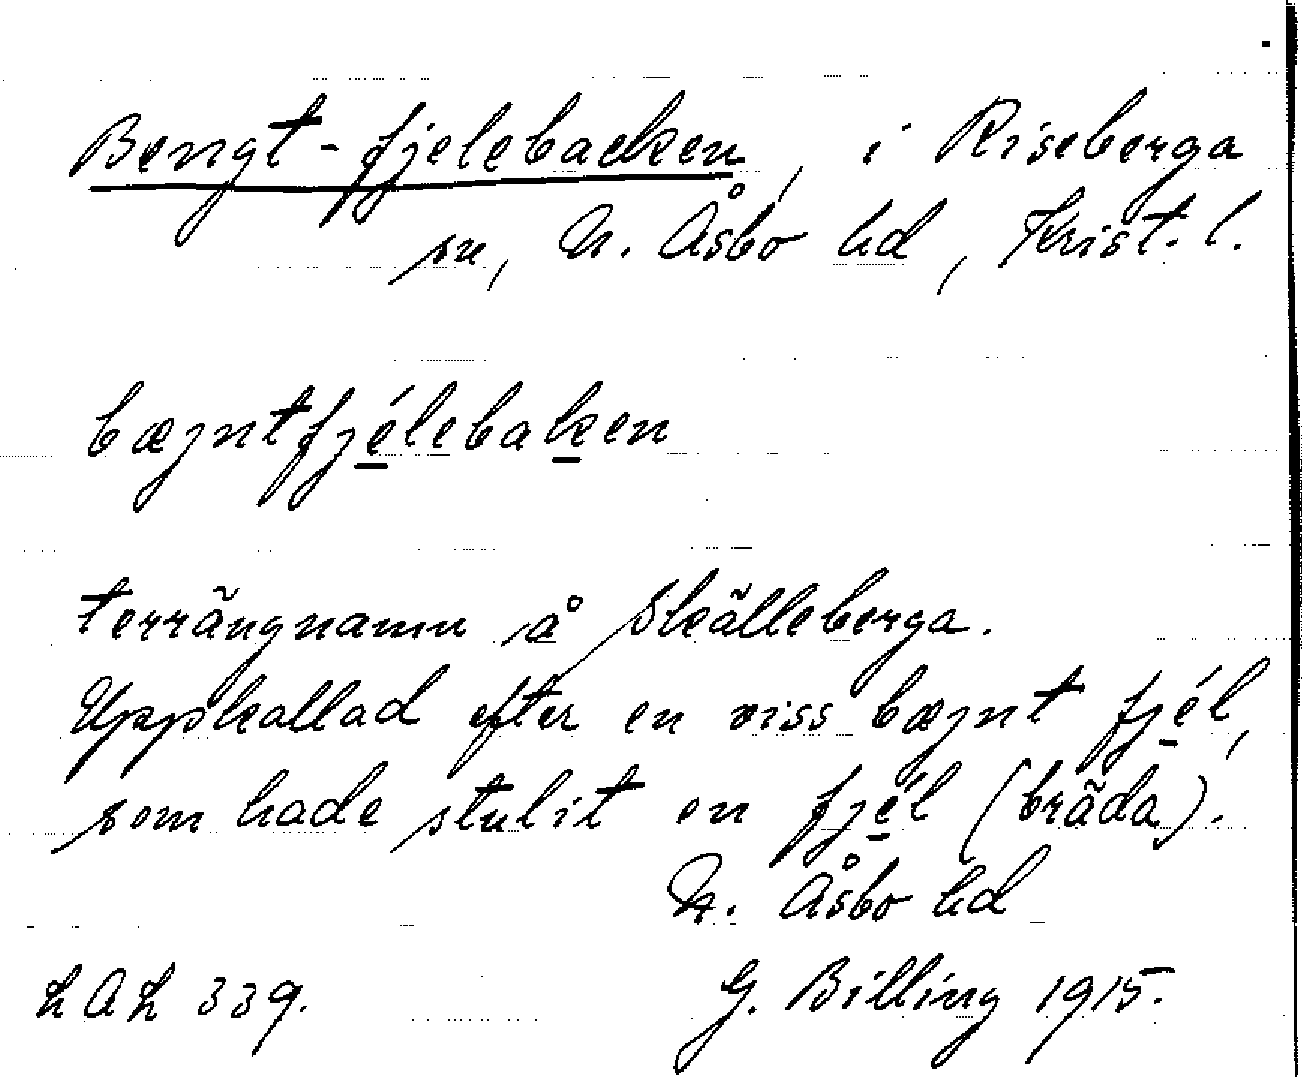 Bengt-fjelebacken, i Riseberga
sn, N. Åsbo hd, Krist. l.
bæŋntfjélebaken
terrängnamn å Skälleberga.
Uppkallad efter en viss bæŋnt fjél,
som hade stulit en fjél (bräda).
N. Åsbo hd
LAL 339. G. Billing 1915.